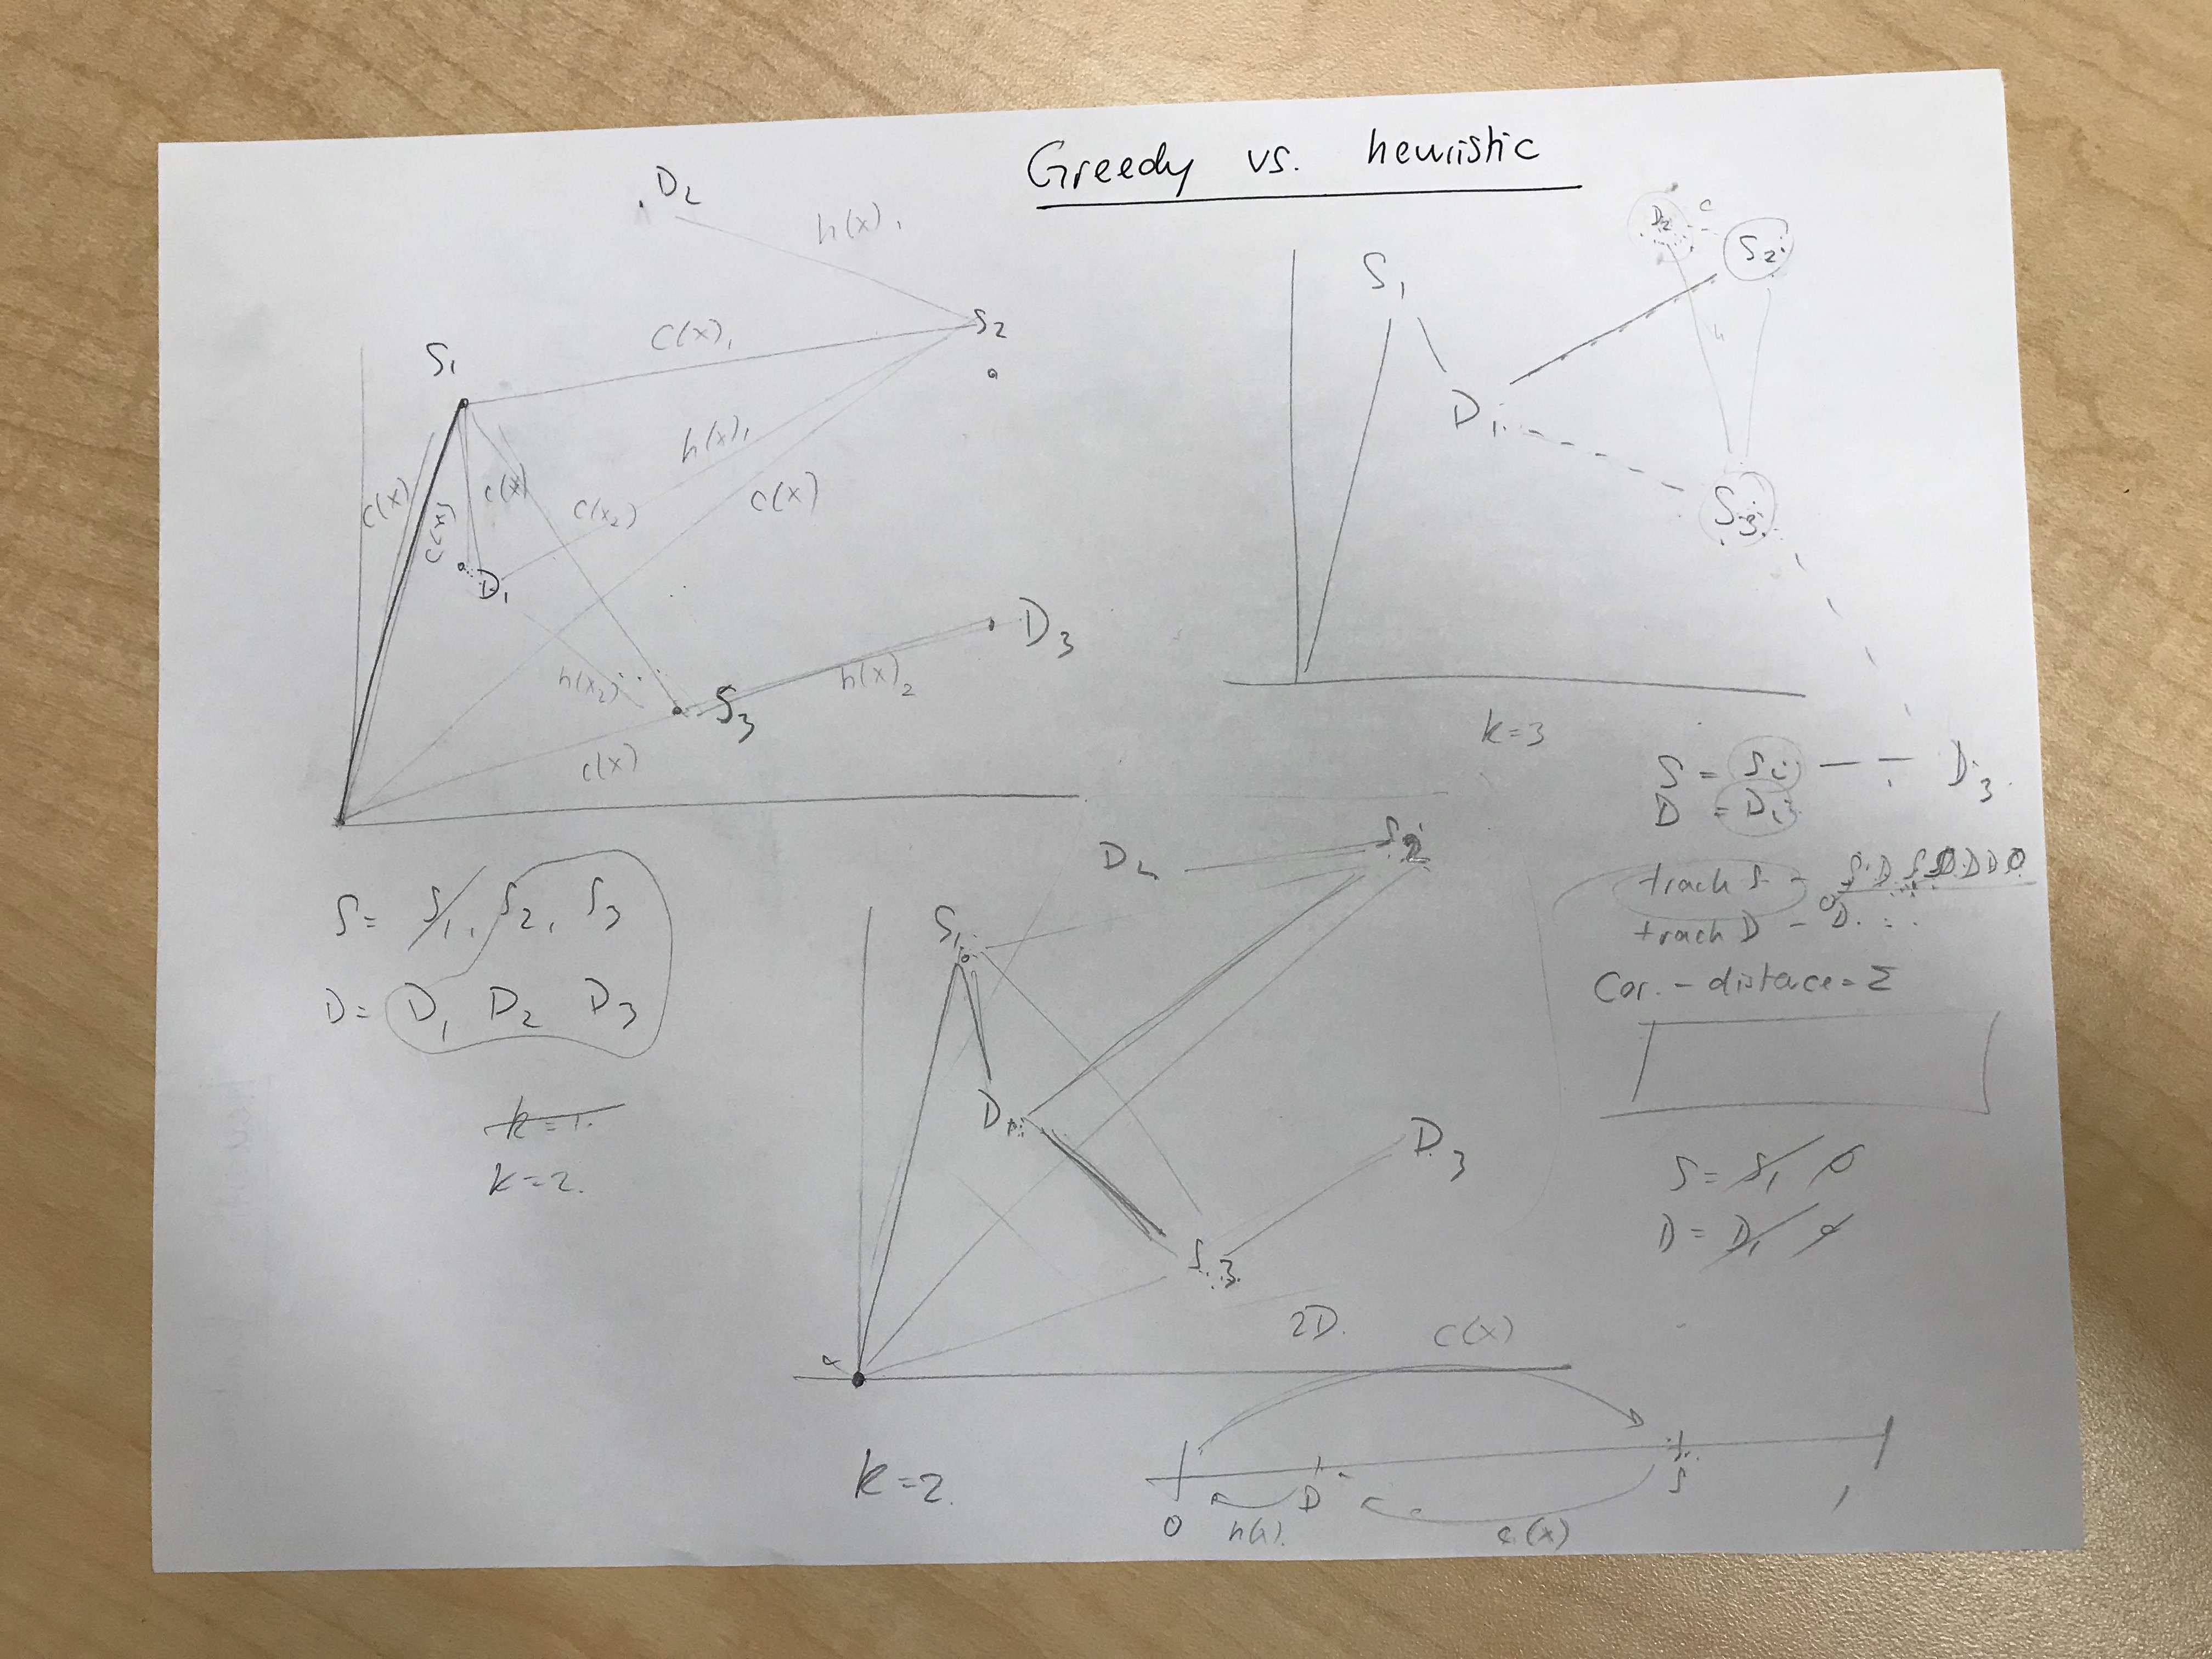 Greedy vs. heuristic
D2
h(x)1
S2
C(x)1
S1
h(x)1
c(x)
c(x)
c(x)
c(x2)
c(x)
D1
D3
h(x2)
h(x)2
S3
c(x)
S = S1, S2, S3
D = D1 D2 D3
k=1.
k=2.
D2
c
S2
S1
h
D1
S3
k=3
S = Si
D = Di
D3
track S -
track D - D...
Cor. - distance = Σ
S = S1 ∅
D = D1
D2
S2
S1
D1
D3
S3
2D.
k=2.
C(x)
0
D
S
1
h(x).
c(x)